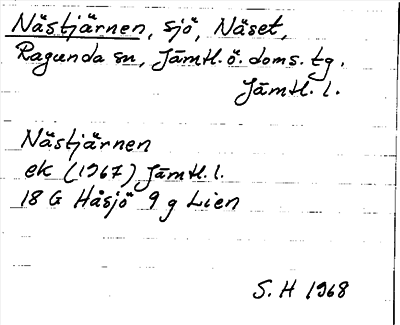 Nästjärnen, sjö, Näset,
Ragunda sn, Jämtl. ö. doms. tg.
Jämtl. l.
Nästjärnen
ek (1967) Jämtl. l.
18 G Håsjö 9 g Lien
S. H 1968